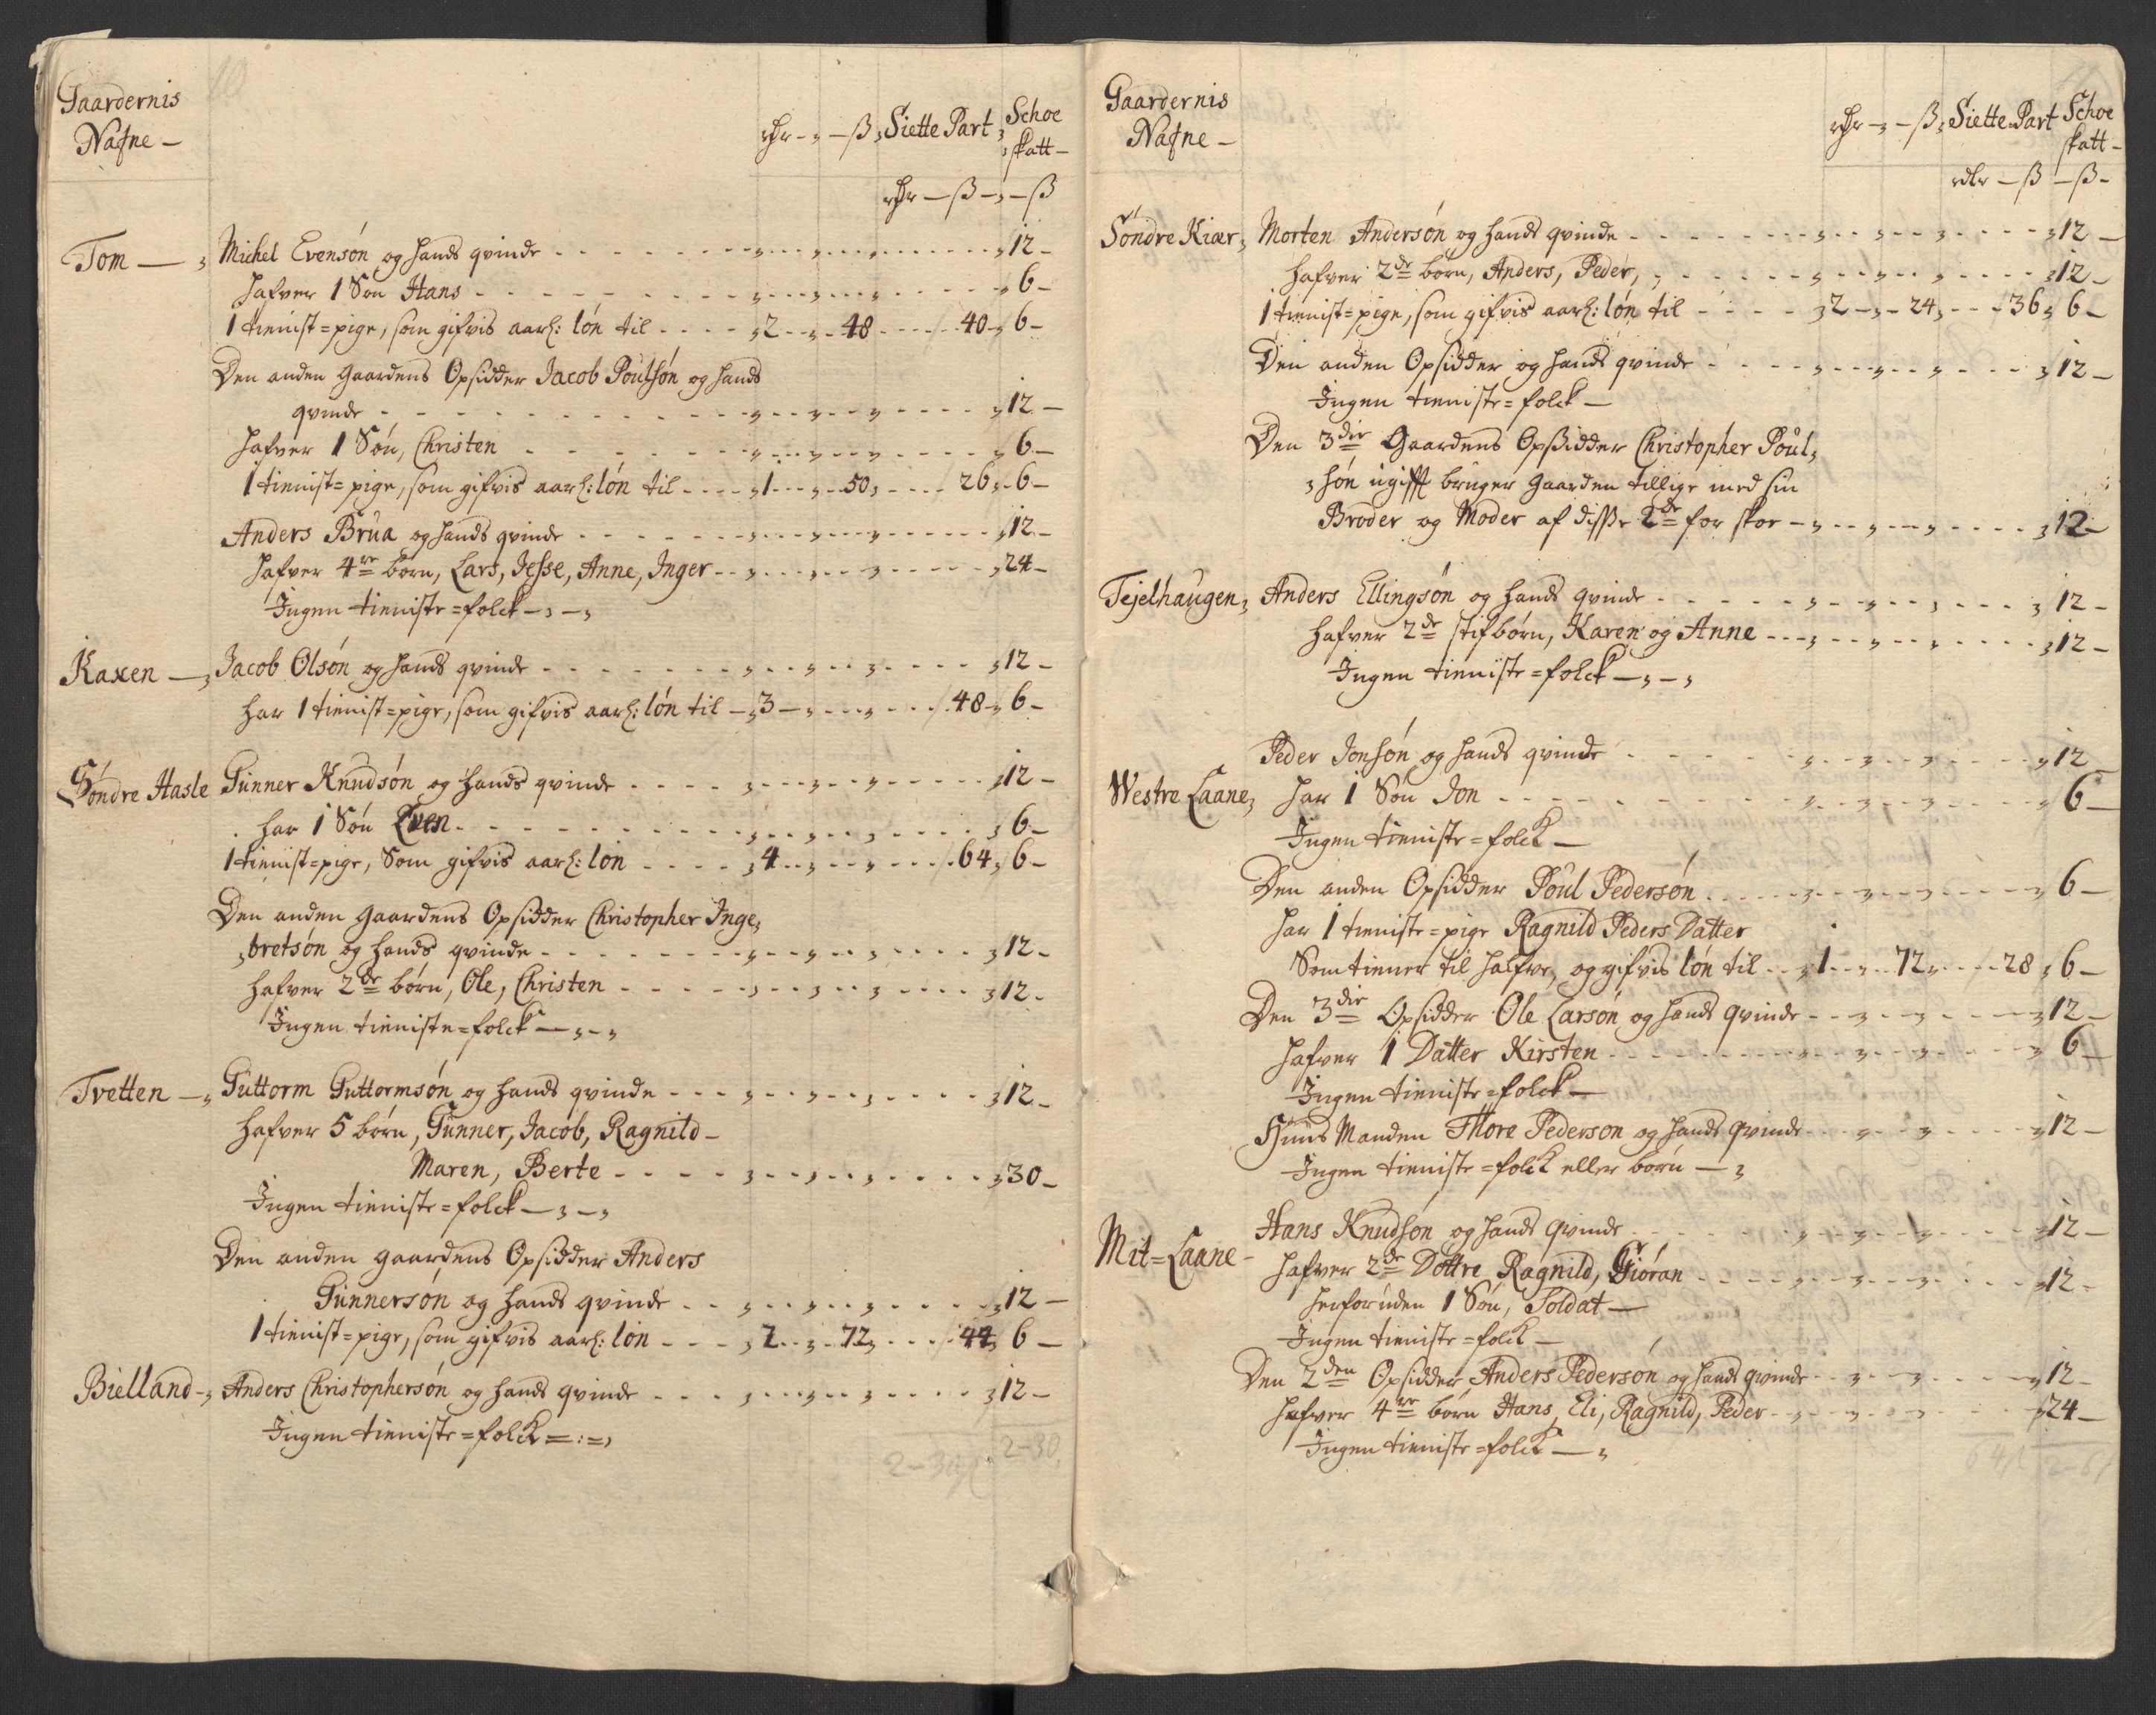 Gaardernis
Nafne —
rdr — ß Siette Part Schoe
skatt —
rdr — ß — ß
Tom — Michel Evensøn og hands qvinde 12 —
hafver 1 Søn Hans 6 —
1 tienist=pige, som gifvis aarl: løn til 2 48 40 6 —
Den anden Gaardens Opsidder Jacob Poulsøn og hands
qvinde 12 —
hafver 1 Søn, Christen 6 —
1 tienist=pige, som gifvis aarl: løn til 1 50 26 6 —
Anders Brua og hands qvinde 12 —
hafver 4re børn, Lars, Jesse, Anne, Inger 24 —
Ingen tieniste=folck —
Kaxen — Jacob Olsøn og hands qvinde 12 —
har 1 tienist=pige, som gifvis aarl: løn til 3 48 6 —
Søndre Hasle Gunner Knudsøn og hands qvinde 12 —
har 1 Søn Even 6 —
1 tienist=pige, Som gifvis aarl: løn 4 64 6 —
Den anden Gaardens Opsidder Christopher Inge,
bretsøn og hands qvinde 12 —
hafver 2de børn, Ole, Christen 12 —
Ingen tieniste=folck —
Tvetten — Guttorm Guttormsøn og hands qvinde 12 —
hafver 5 børn, Gunner, Jacob, Ragnild —
Maren, Berte 30 —
Ingen tieniste=folck —
Den anden gaardens Opsidder Anders
Gunnersøn og hands qvinde 12 —
1 tienist=pige, som gifvis aarl: løn 2 72 44 6 —
Bielland — Anders Christophersøn og hands qvinde 12 —
Ingen tieniste=folck
2-30
Gaardernis
Nafne —
rdr — ß Siette Part Schoe
skatt —
rdlr — ß — ß —
Søndre Kiær, Morten Andersøn og hands qvinde 12 —
hafver 2de børn, Anders, Peder, 12 —
1 tienist=pige, som gifvis aarl: løn til 2 24 36 6 —
Den anden Opsidder og hands qvinde 12 —
Ingen tieniste=folck —
Den 3die Gaardens Opsidder Christopher Poul,
søn ugifft bruger Gaarden tillige med sin
Broder og Moder af disse 2de for skoe 12 —
Tejelhaugen, Anders Ellingsøn og hands qvinde 12 —
hafver 2de stifbørn, Karen og Anne 12 —
Ingen tieniste=folck —
Peder Jonsøn og hands qvinde 12 —
Westre Laane, har 1 Søn Jon 6 —
Ingen tieniste=folck —
Den anden Opsidder Poul Pedersøn 6 —
har 1 tieniste=pige Ragnild Peders Datter
Som tiener til halfve, og gifvis løn til 1 72 28 6 —
Den 3die Opsidder Ole Larsøn og hands qvinde 12 —
hafver 1 Datter Kirsten 6 —
Ingen tieniste=folck —
Huus Manden Thore Pederson og hands qvinde 12 —
Ingen tieniste=folck eller børn —
Mit=Laane — Hans Knudson og hands qvinde 12 —
hafver 2de Dottre Ragnild, Giøran 12 —
herforuden 1 Søn, Soldat —
Ingen tieniste=folck —
Den 2den Opsidder Anders Pedersøn og hands qvinde 12 —
hafver 4re børn Hans, Eli, Ragnild, Peder 24 —
Ingen tieniste=folck —